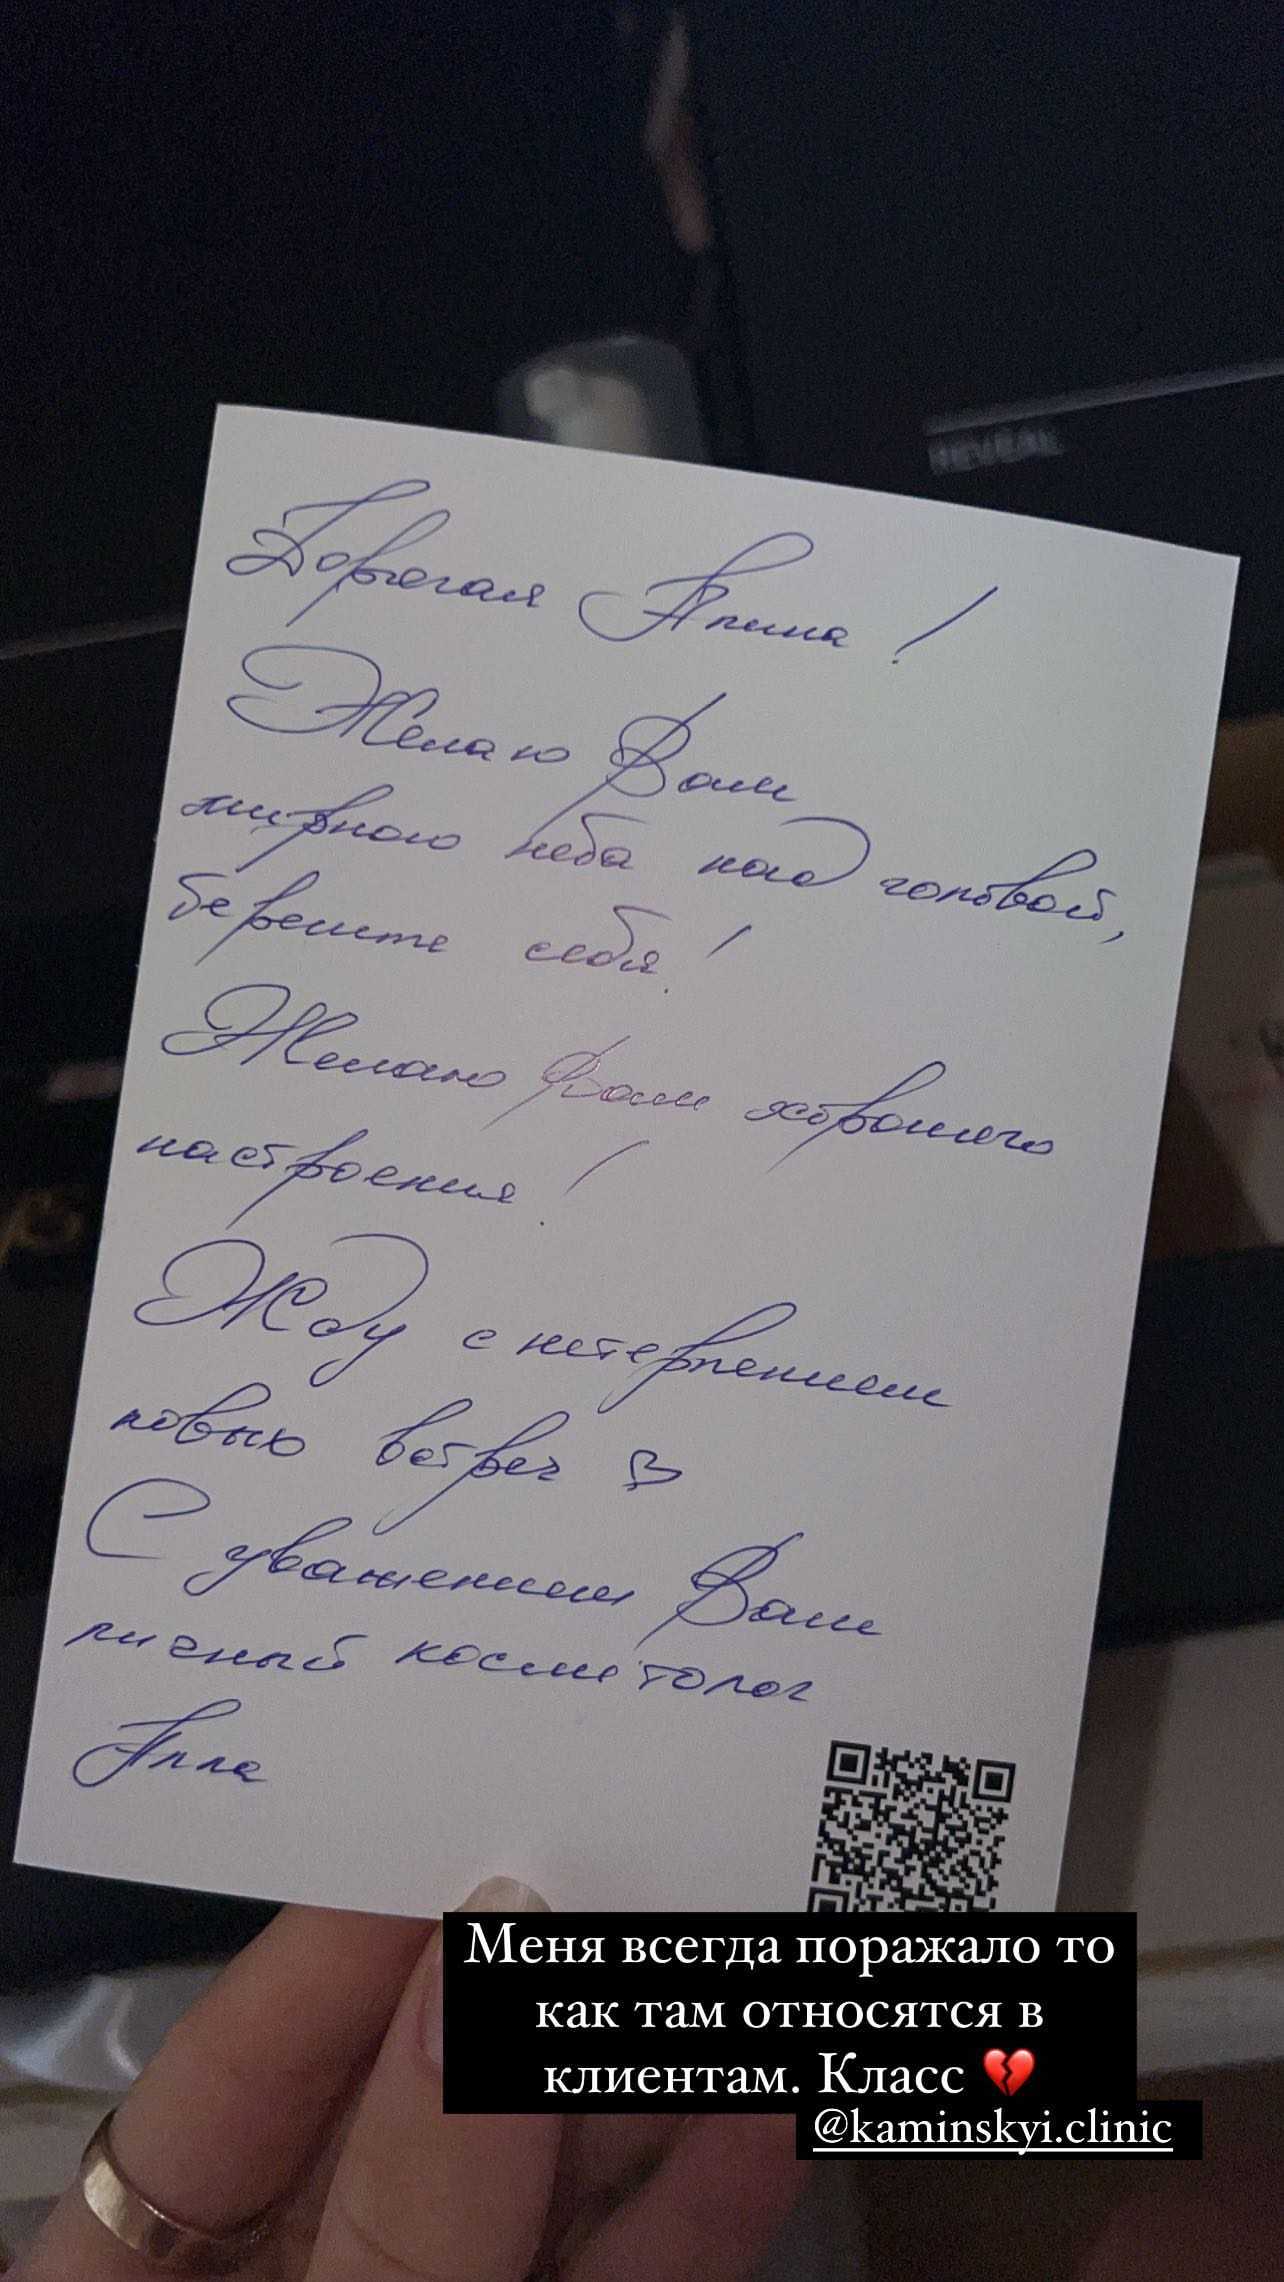 REVEAL
Дорогая Алина!
Желаю Вам
мирного неба над головой,
берегите себя!
Желаю Вам хорошего
настроения!
Жду с нетерпением
новых встреч
С уважением Ваш
личный косметолог
Алла
Меня всегда поражало то
как там относятся в
клиентам. Класс 💔
@kaminskyi.clinic